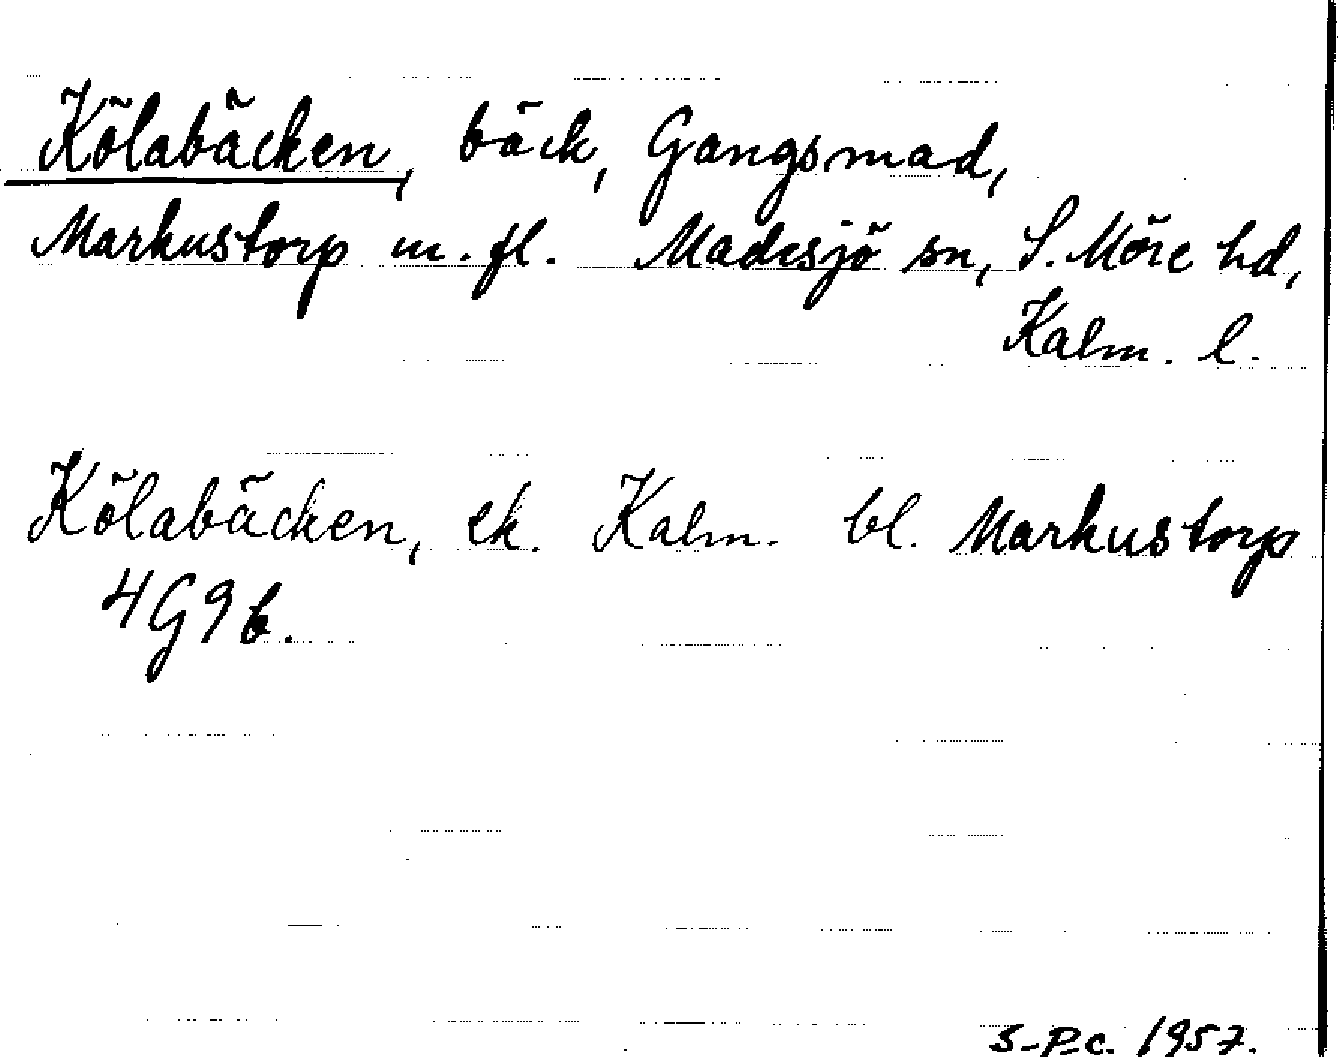 Kölabäcken, bäck, Gangsmad,
Markustorp m.fl. Madesjö sn, S. Möre hd,
Kalm. l.
Kölabäcken, ek. Kalm. bl. Markustorp
4G9b.
S-P-c. 1957.